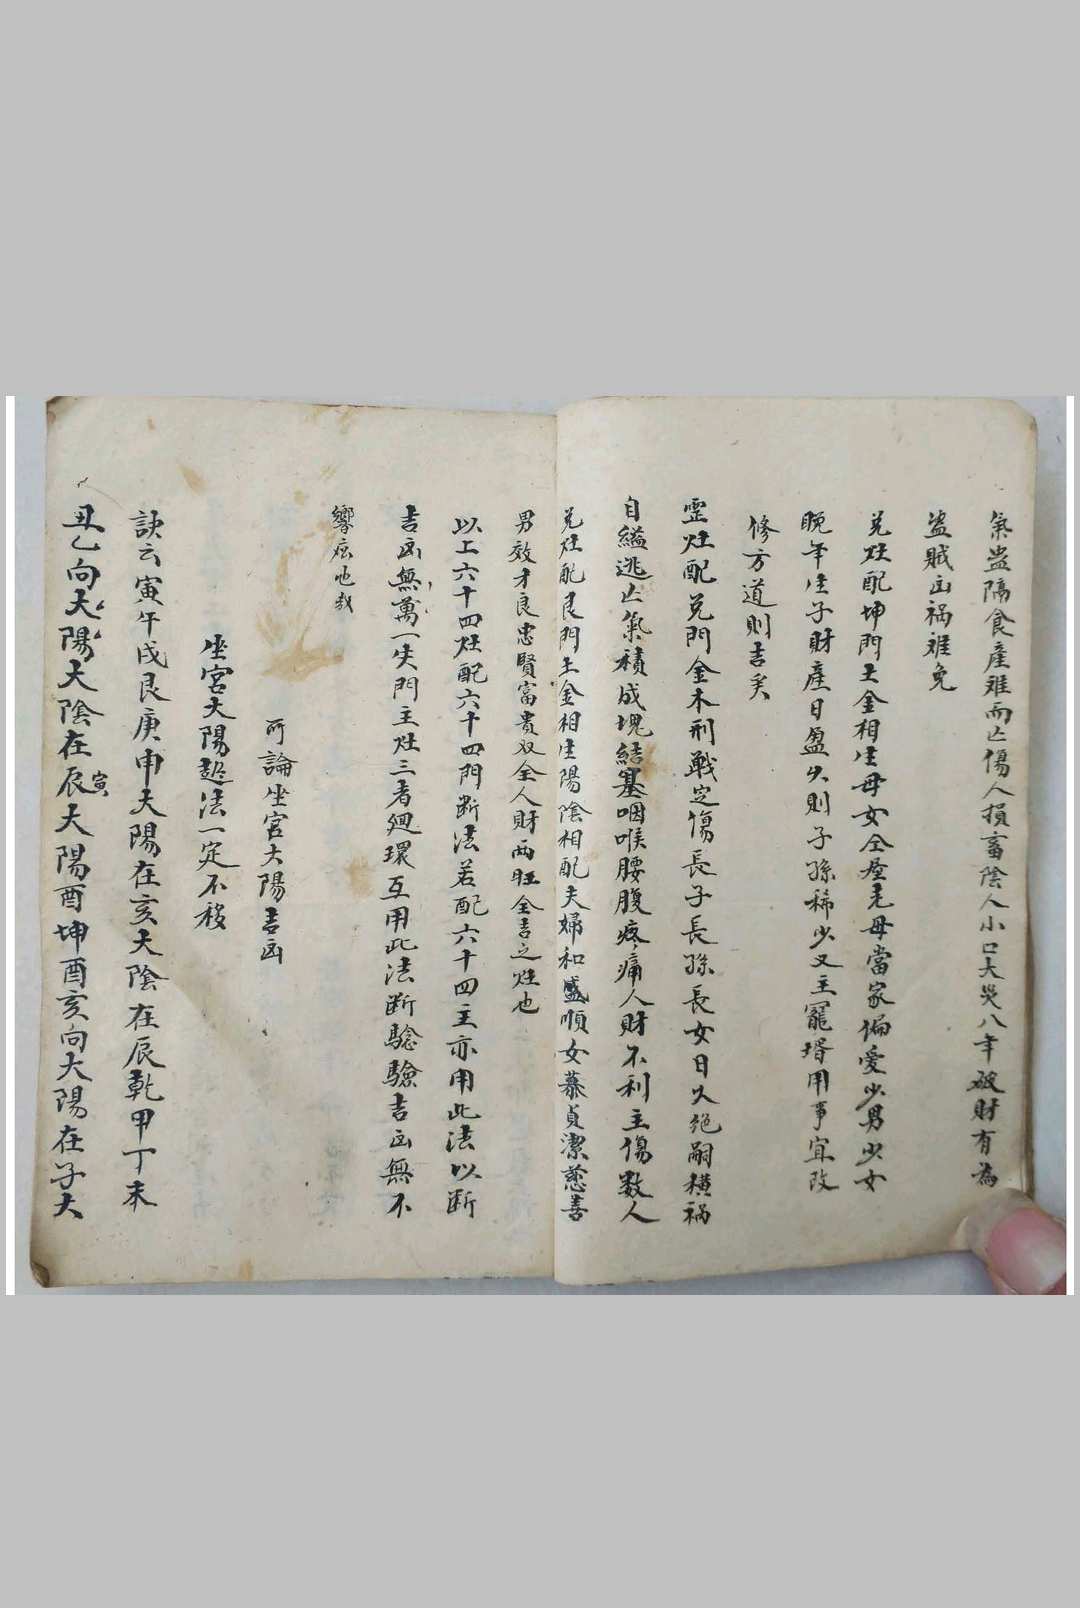 氣蠱隔食產难而亡傷人損畜陰人小口大災八年破財有為
盜賊凶祸难免
兑灶配坤門土金相生母女全產老母當家偏愛少男少女
晚年生子財產日盈久則子孫稀少又主寵壻用事宜改
修方道則吉矣
灶配兑門金木刑戰定傷長子長孫長女日久绝嗣横祸
自縊逃亡氣積成塊結塞咽喉腰腹疼痛人財不利主傷数人
兑灶配艮門土金相生陽陰相配夫婦和盛順女慕貞潔慈善
男效才良忠賢富貴双全人財两旺全吉之灶也
以上六十四灶配六十四門断法若配六十四主亦用此法以断
吉凶無萬一失門主灶三者廻環互用此法断騐驗吉凶無不
響应也哉
所論坐宮太陽吉凶
坐宮太陽起法一定不移
訣云寅午戌艮庚申太陽在亥太陰在辰乾甲丁未
丑乙向太陽太陰在辰寅太陽酉坤酉亥向太陽在子太